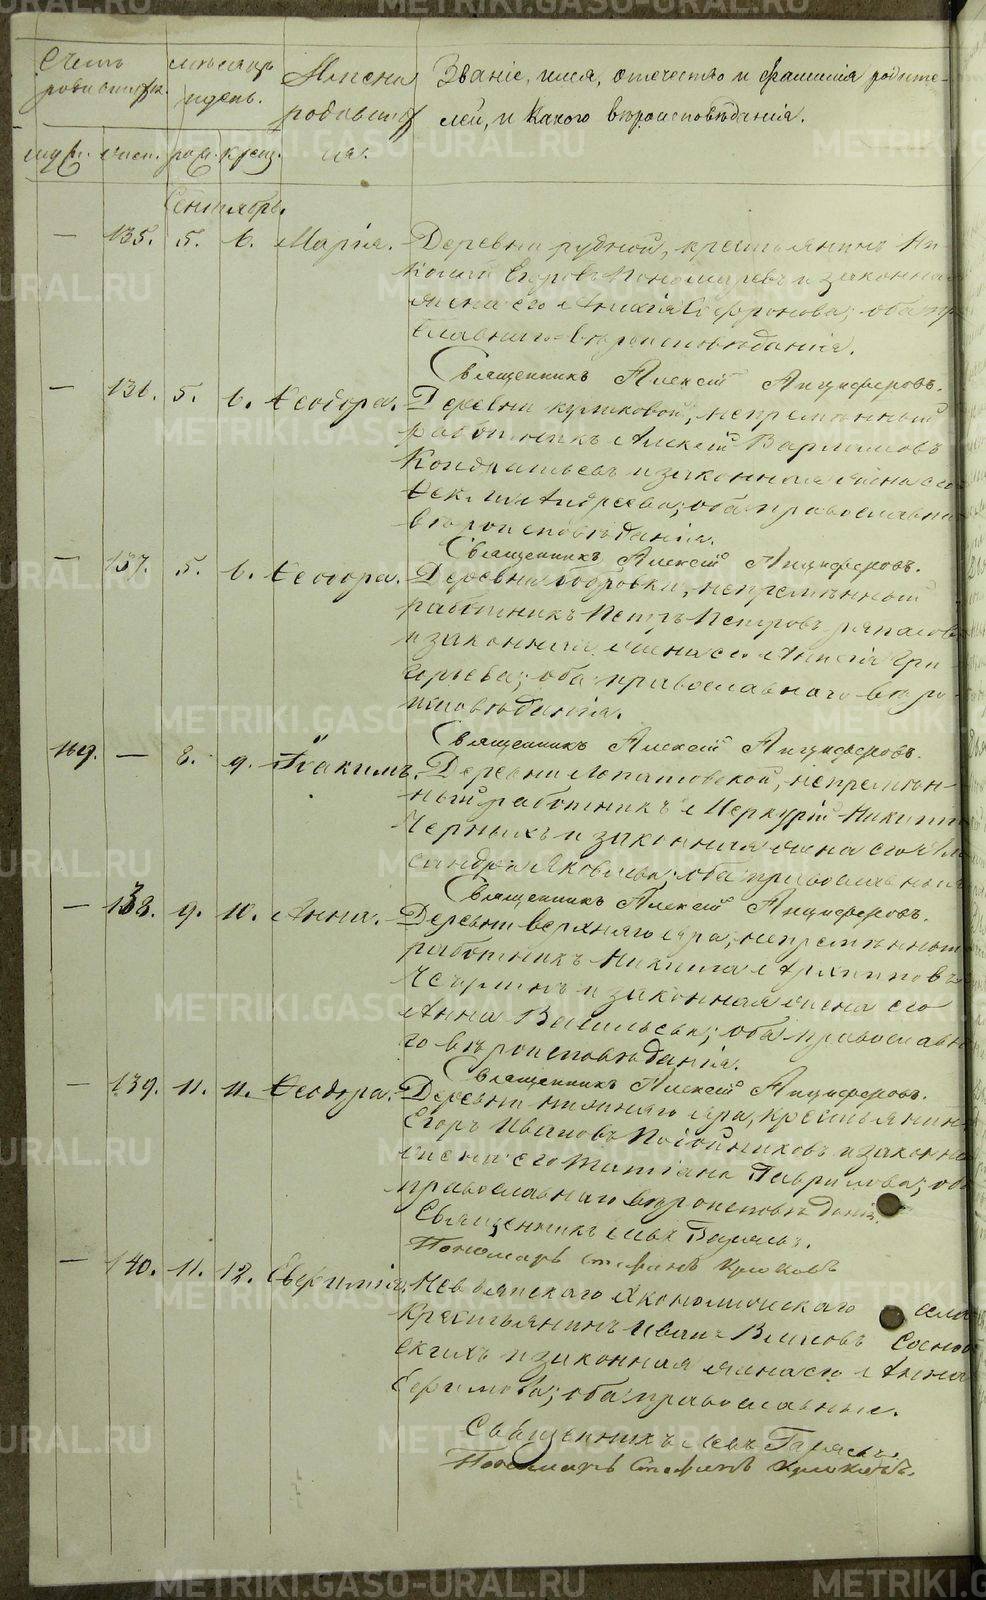 Счетъ родившихся.
мужс. женс.
Мѣсяцъ и день.
рожд. крещ.
Имена родившихся.
Званіе, имя, отечество и фамилія родите-
лей, и какого вѣроисповѣданія.
Сентябрь.
— 135. 5. 6. Марія. Деревни рудной, крестьянинъ Ни
колай Егоровъ Пономаревъ и законная
жена его Софронова; оба пра
славнаго вѣроисповѣданія.
Священникъ Алексій Анциферовъ.
— 136. 5. 6. Ѳеодора. Деревни куликовой, непремѣнный
работникъ Алексѣй Варламовъ
Кондратьевъ и законная жена его
Андреева; оба православнаго
вѣроисповѣданія.
Священникъ Алексій Анциферовъ.
— 137. 5. 6. Ѳеодора. Деревни бобровки, непремѣнный
работникъ Петръ Петровъ
и законная жена его Гри
горьева; оба православнаго вѣро-
исповѣданія.
Священникъ Алексій Анциферовъ.
169. — 8. 9. Іоакимъ. Деревни Липатовской, непремѣн-
ный работникъ Меркурій Никитинъ
Черныхъ и законная жена его Алек
сандра Яковлева; оба православныя
Священникъ Алексій Анциферовъ.
— 138. 9. 10. Анна. Деревни верхняго яра, непремѣнный
работникъ Никита Архиповъ
и законная жена его
Анна Васильева; оба православна
го вѣроисповѣданія.
Священникъ Алексій Анциферовъ.
— 139. 11. 11. Ѳеодора. Деревни нижняго яра, крестьянинъ
Егоръ Ивановъ и законная
жена его Татіана Гаврилова; оба
православнаго вѣроисповѣданія.
Священникъ Левъ Гаряевъ.
Пономарь Стефанъ Куликовъ
— 140. 11. 12. Евфимія. Невьянскаго экономическаго села
крестьянинъ Иванъ Соснов
скихъ и законная жена его Анна
Ефимова; оба православные.
Священникъ Левъ Гаряевъ.
Пономарь Стефанъ Куликовъ.
METRIKI.GASO-URAL.RU